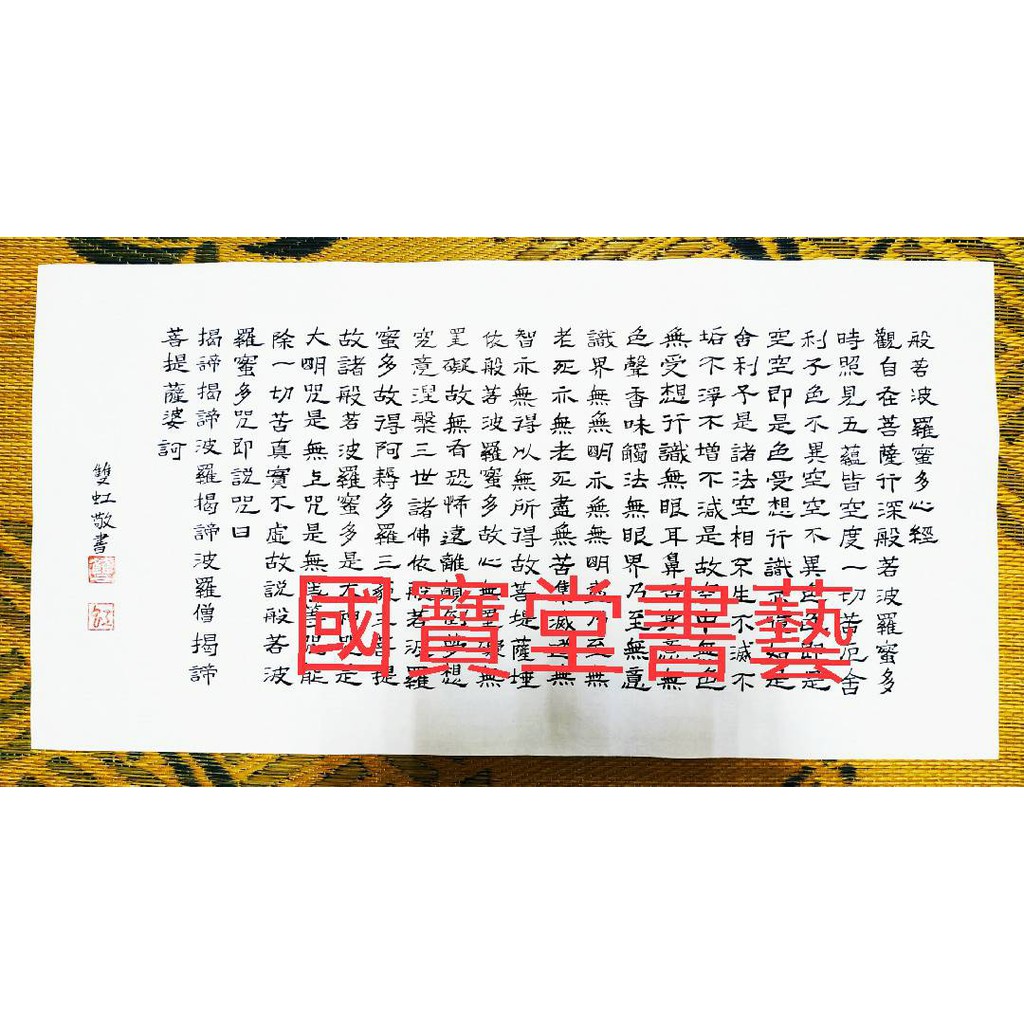 般若波羅蜜多心經
觀自在菩薩行深般若波羅蜜多
時照見五蘊皆空度一切苦厄舍
利子色不異空空不異色色即是
空空即是色受想行識亦復如是
舍利子是諸法空相不生不滅不
垢不淨不增不減是故空中無色
無受想行識無眼耳鼻舌身意無
色聲香味觸法無眼界乃至無意
識界無無明亦無無明盡乃至無
老死亦無老死盡無苦集滅道無
智亦無得以無所得故菩提薩埵
依般若波羅蜜多故心無罣礙無
罣礙故無有恐怖遠離顛倒夢想
究竟涅槃三世諸佛依般若波羅
蜜多故得阿耨多羅三藐三菩提
故諸般若波羅蜜多是大神咒是
大明咒是無上咒是無等等咒能
除一切苦真實不虛故説般若波
羅蜜多咒即説咒曰
揭諦揭諦波羅揭諦波羅僧揭諦
菩提薩婆訶
雙虹敬書
國寶堂書藝